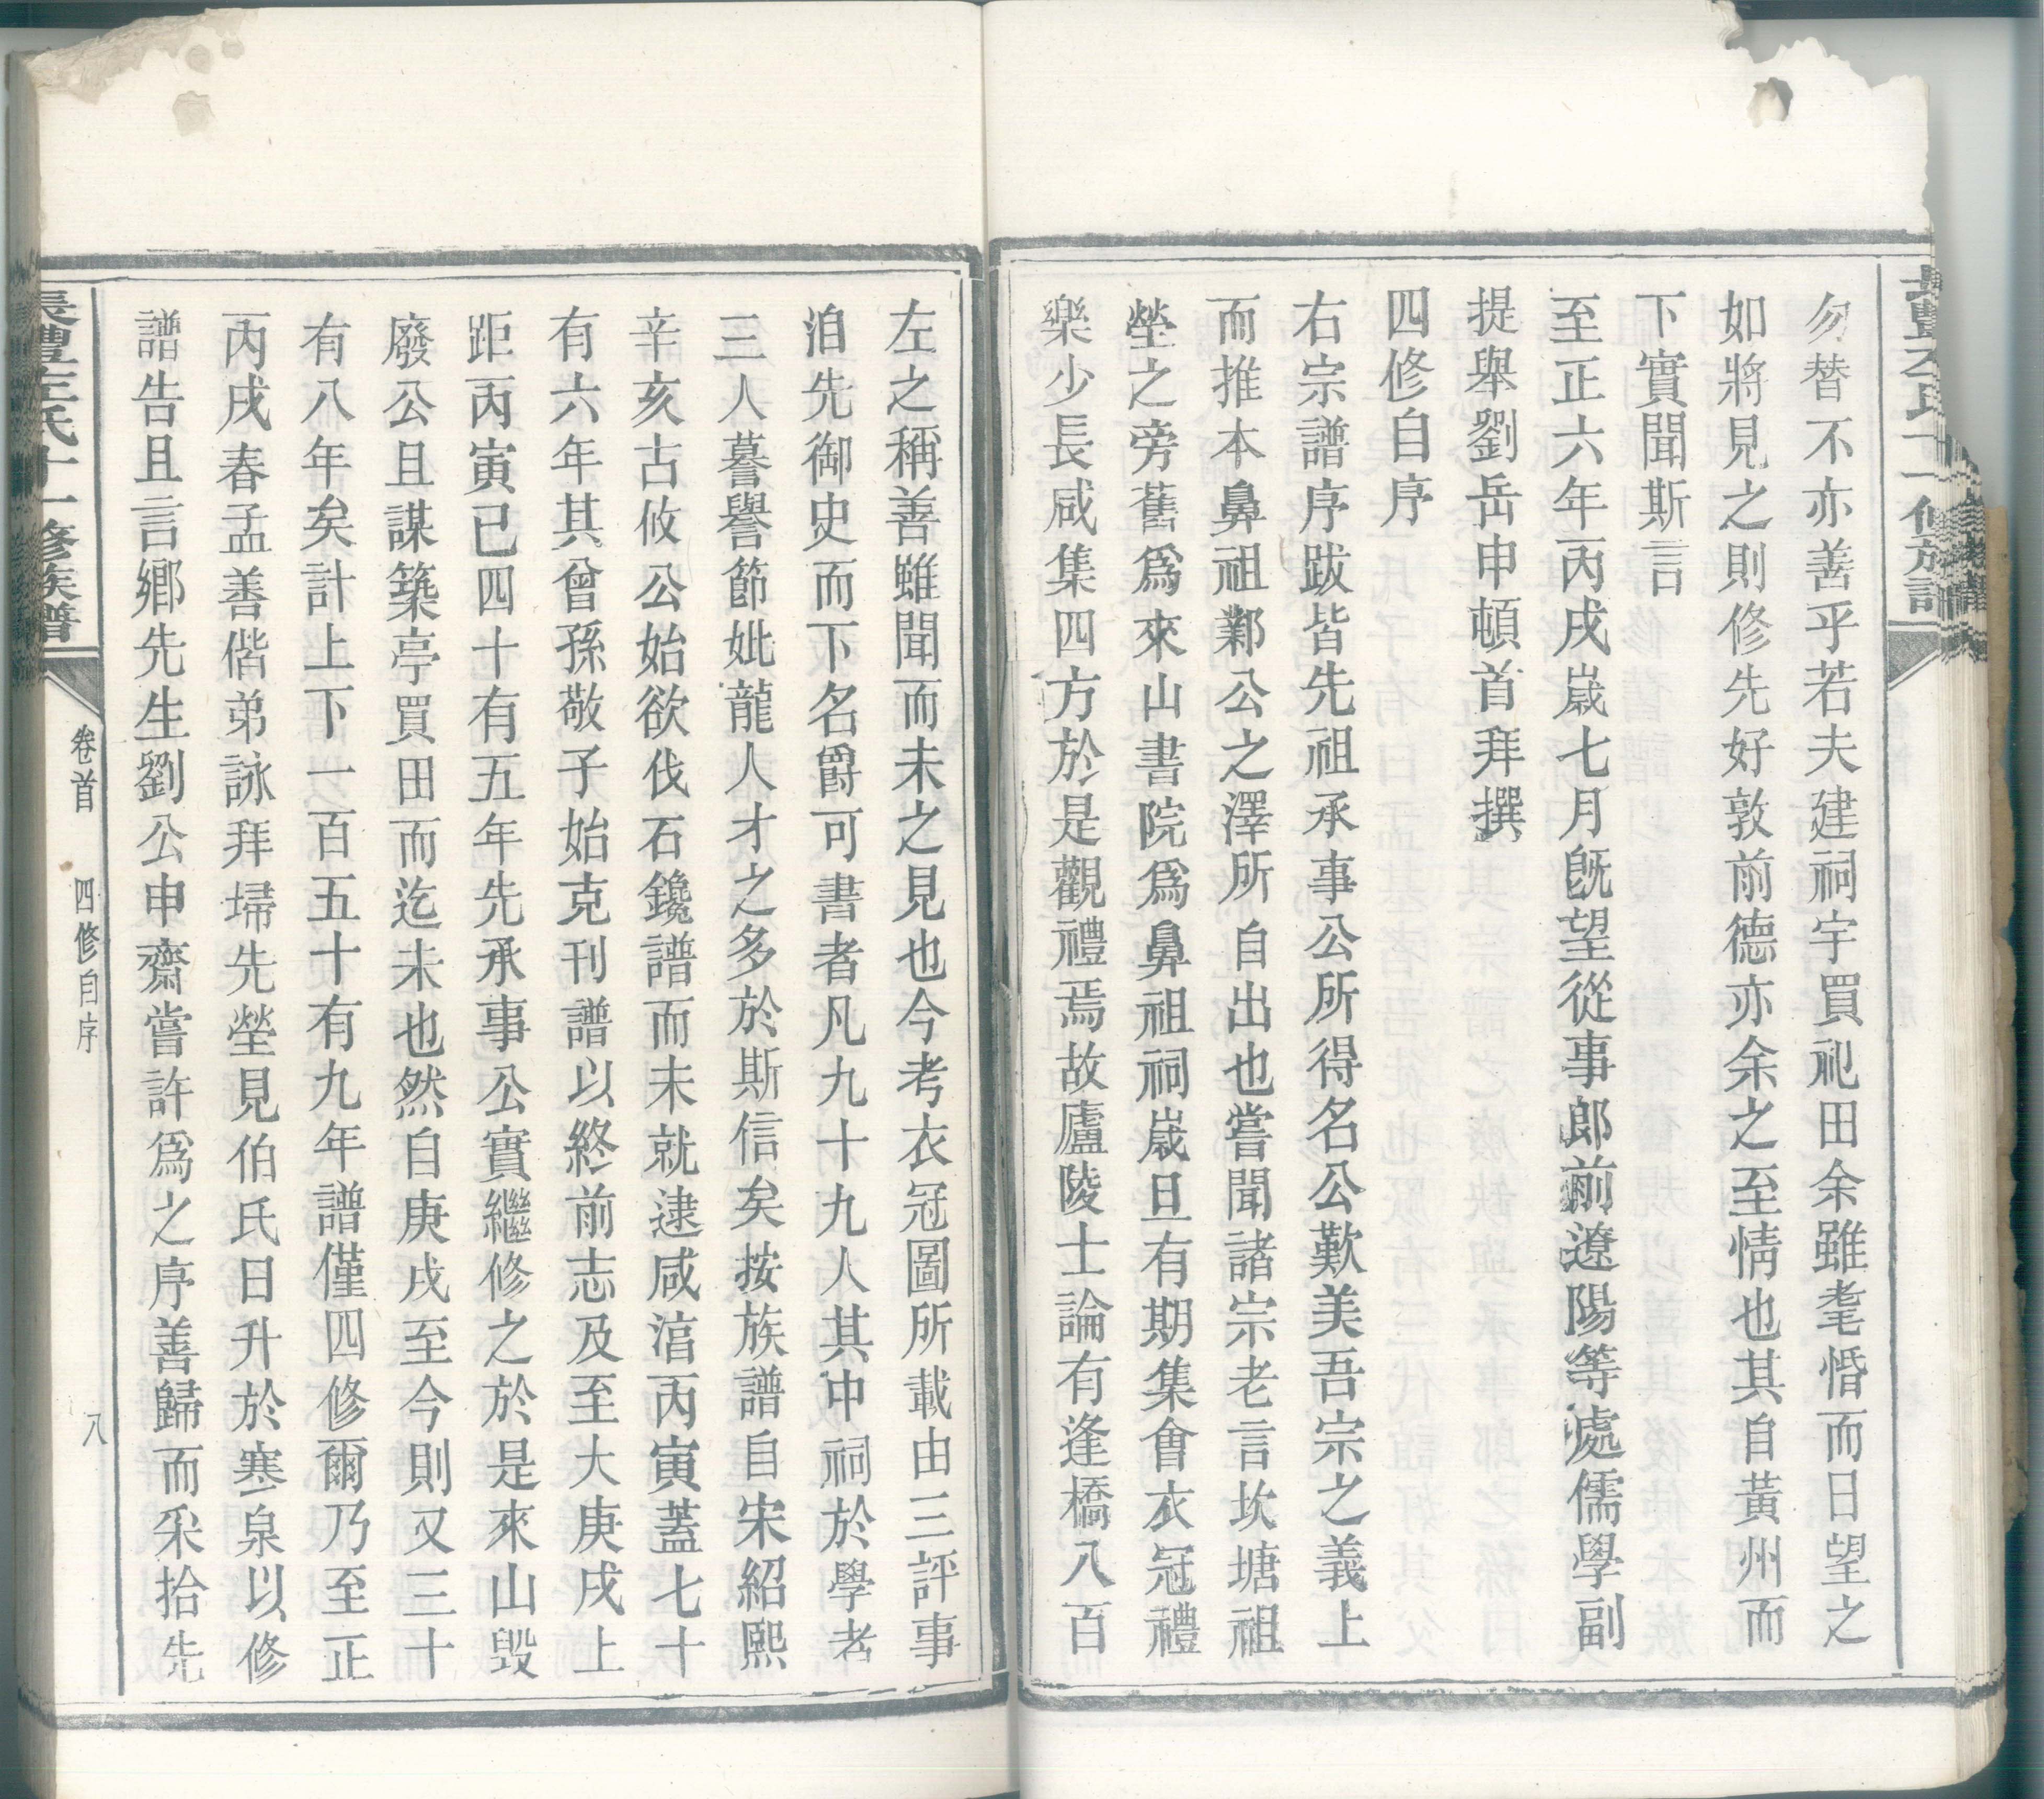 勿替不亦善乎若夫建祠宇買祀田余雖耄惛而日望之
如將見之則修先好敦前德亦余之至情也其自黃州而
下實聞斯言
至正六年丙戌歲七月旣望從事郎前遼陽等處儒學副
提舉劉岳申頓首拜撰
四修自序
右宗譜序跋皆先祖承事公所得名公歎美吾宗之義上
而推本鼻祖鄴公之澤所自出也嘗聞諸宗老言坎塘祖
塋之旁舊爲來山書院爲鼻祖祠歲旦有期集會衣冠禮
樂少長咸集四方於是觀禮焉故廬陵士論有逢橋八百
左之稱善雖聞而未之見也今考衣冠圖所載由三評事
洎先御史而下名爵可書者凡九十九人其中祠於學者
三人蓦譽節妣龍人才之多於斯信矣按族譜自宋紹熙
辛亥古攸公始欲伐石鑱譜而未就逮咸淳丙寅蓋七十
有六年其曾孫敬子始克刊譜以終前志及至大庚戌上
距丙寅已四十有五年先承事公實繼修之於是來山毀
廢公且謀築亭買田而迄未也然自庚戌至今則又三十
有八年矣計上下一百五十有九年譜僅四修爾乃至正
丙戌春孟善偕弟詠拜埽先塋見伯氏日升於寒泉以修
譜告且言鄉先生劉公申齋嘗許爲之序善歸而采拾先
長豐左氏十一修族譜
卷首
四修自序
八